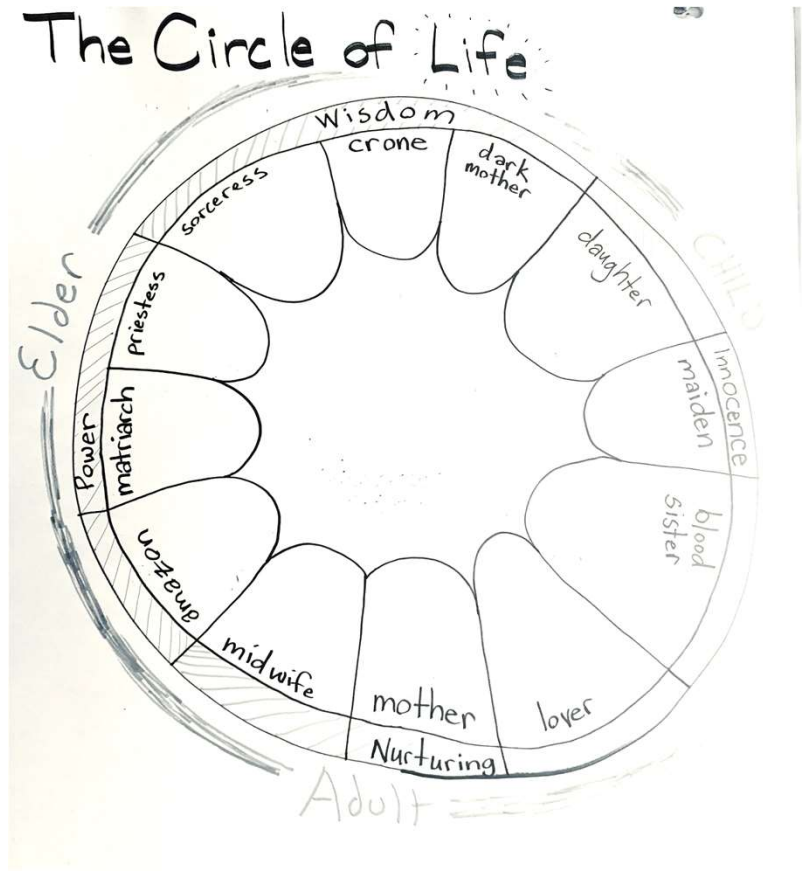 The Circle of Life
Wisdom
crone
dark
mother
daughter
CHILD
Innocence
maiden
blood
sister
lover
mother
Nurturing
Adult
midwife
amazon
Power
matriarch
Elder
priestess
sorceress